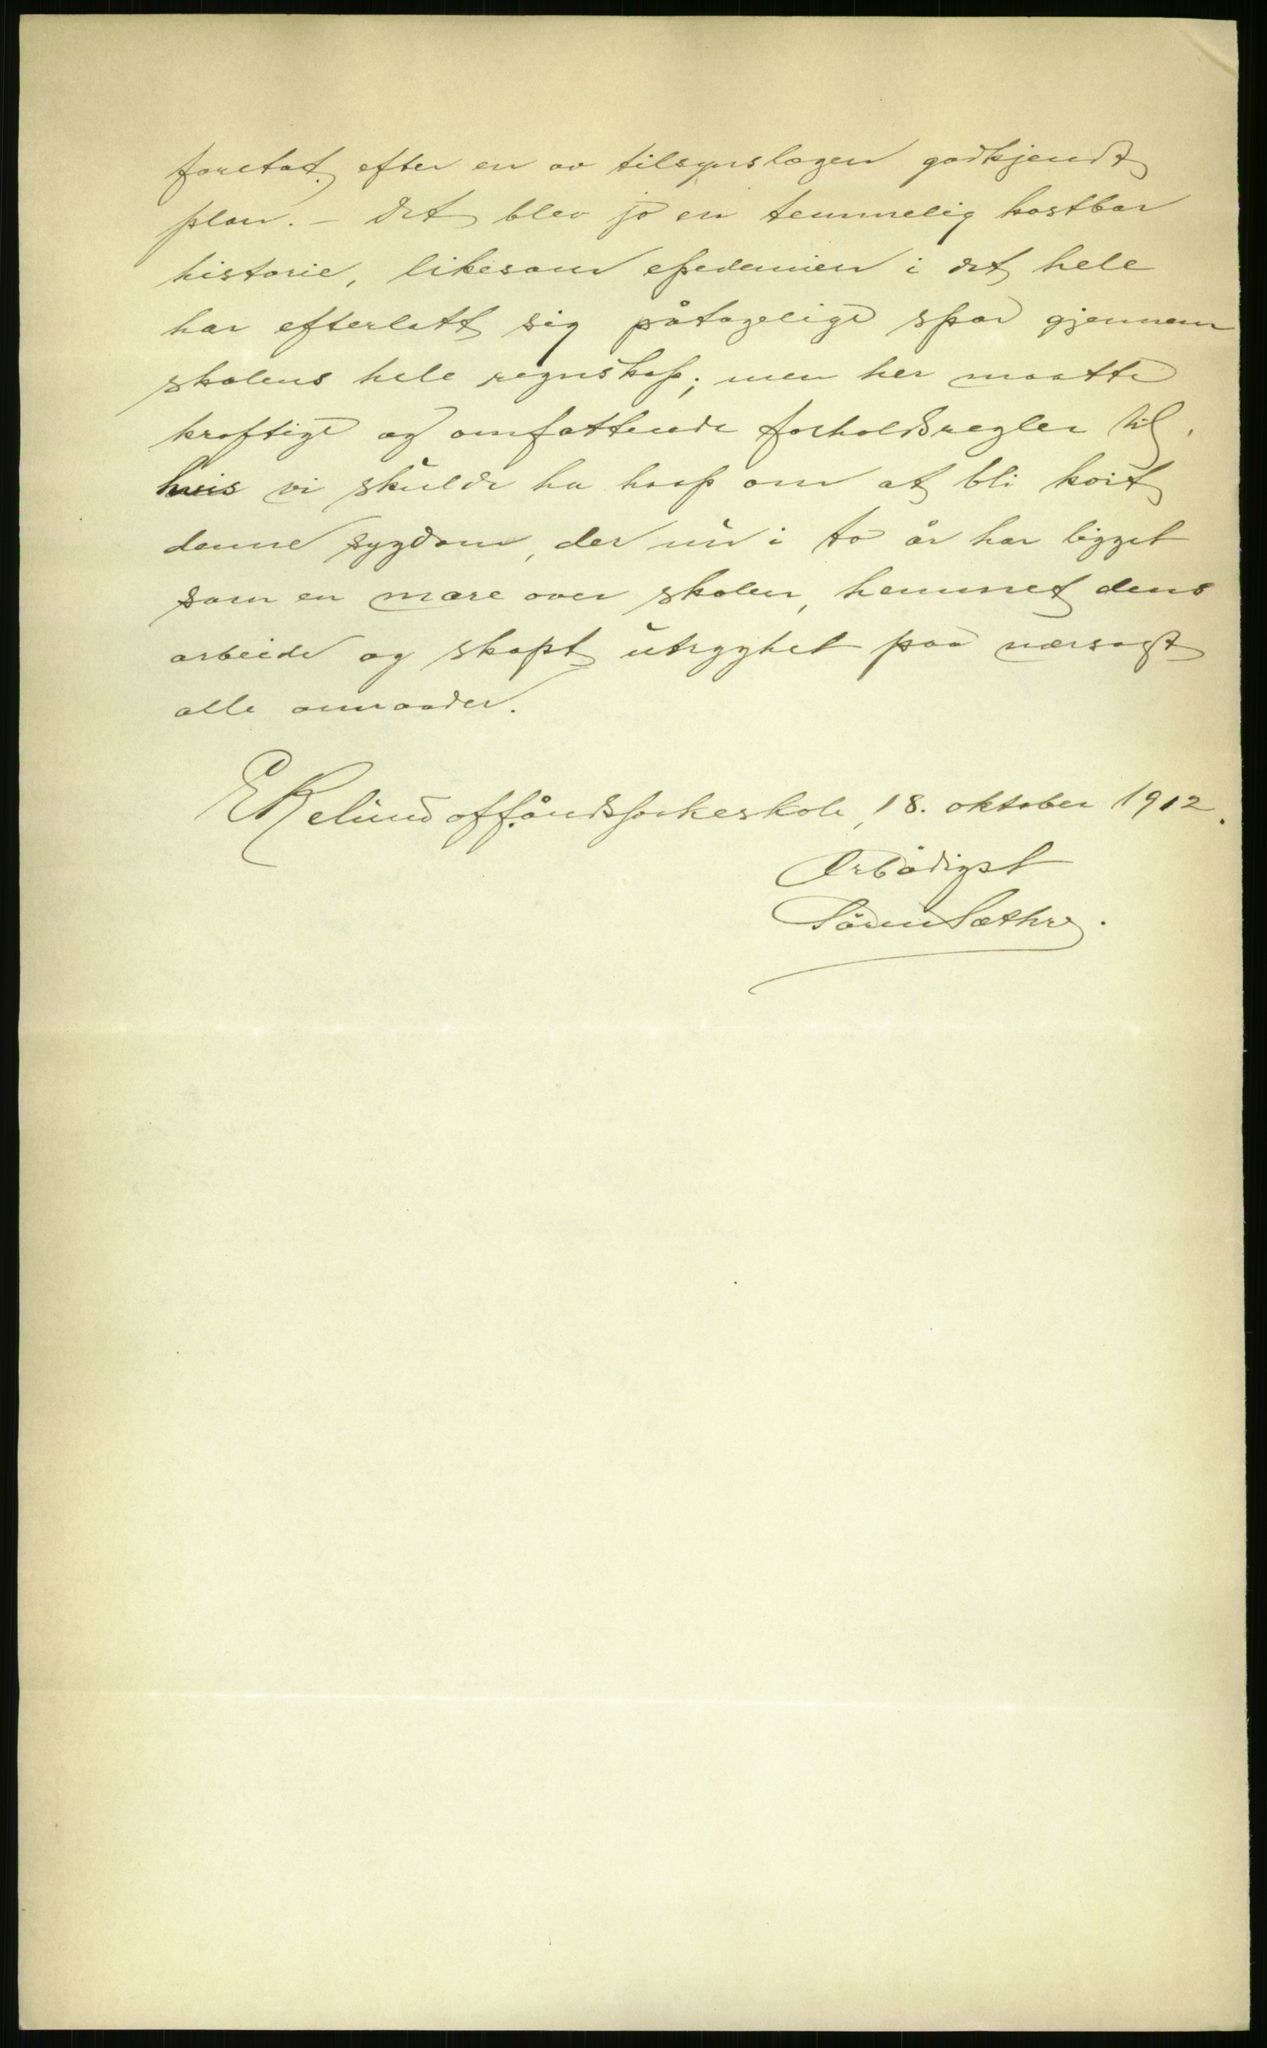 foretat efter en av tilsynslægen godkjendt
plan. – Det blev jo en temmelig kostbar
historie, likesom epedemien i det hele
har efterlatt sig påtagelige spor gjennem
skolens hele regnskap; men her maatte
kraftige og omfattende forholdsregler til,
hvis vi skulde ha haap om at bli kvit
denne sygdom, der nu i to år har ligget
som en mare over skolen, hemmet dens
arbeide og skapt utryghet paa nærsagt
alle omraader.
Ekelund off. åndssvakeskole, 18. oktober 1912.
Ærbødigst
Sören Sæthre.